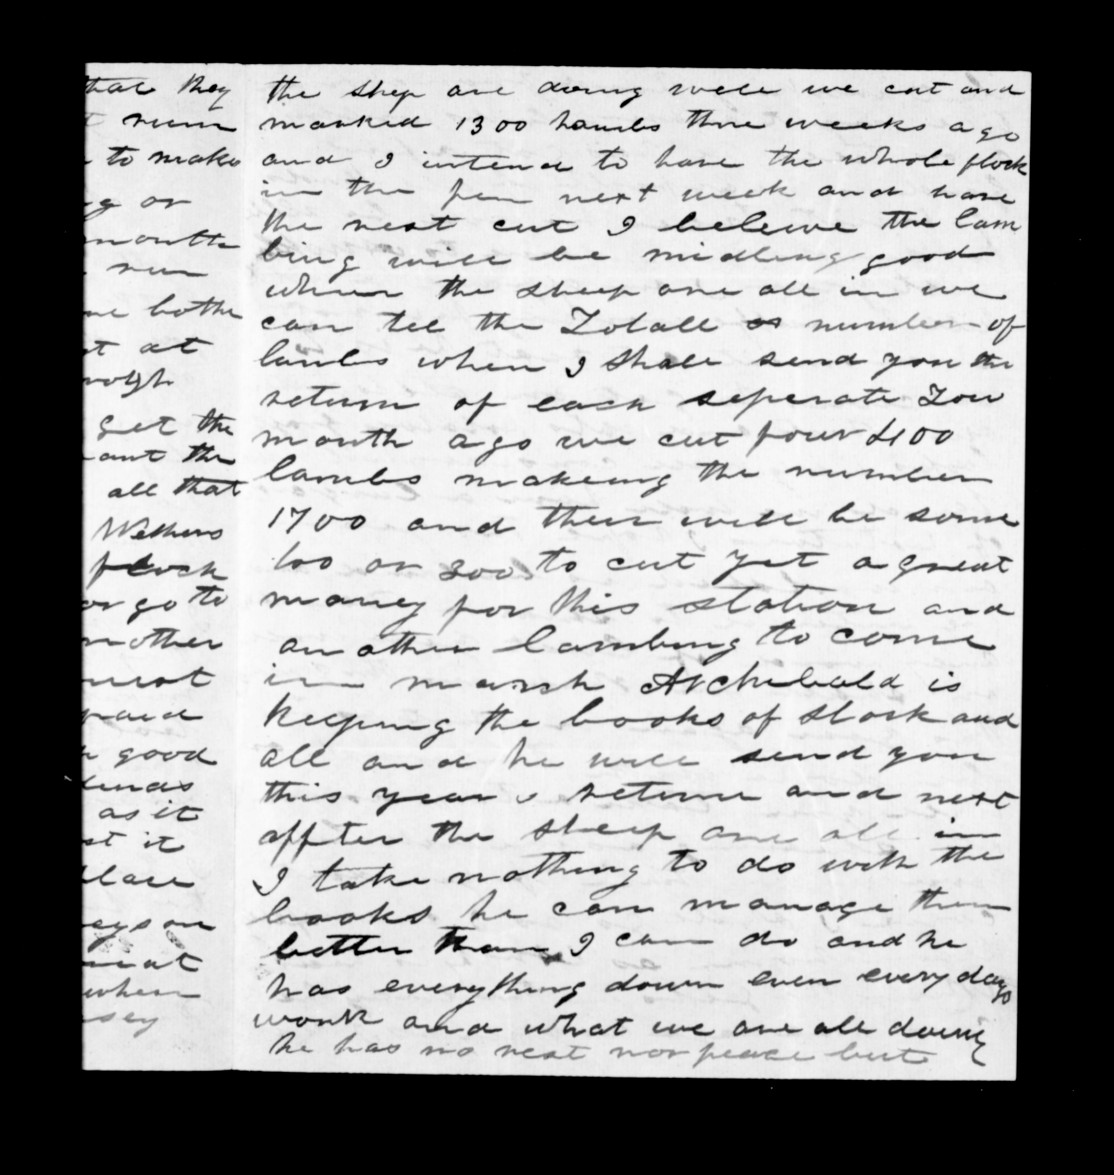 that they
run
to make
or
month
run
bothe
at
get the
the
all that
Wethers
flock
or go to
mother
next
paid
good
as it
it
when
the shep are doing well we cut and
marked 1300 hambs thre weeks ago
and I intend to have the whole flock
in the pen next week and have
the rest cut I beleive the lam
bing will be midling good
when the sheep are all in we
can tell the Totall number of
lambs when I shall send you the
return of each seperate Tow
month ago we cut four 400
lambs makeing the number
1700 and their will be some
too or 300 to cut yet a great
maney for this station and
an other lambing to come
in march Archebald is
keeping the books of stock and
all and he will send you
this years return and next
affter the sheep are all in
I take nothing to do with the
books he can manage them
better than I can do and he
has everything down even every days
work and what we are all doing
he has no rest nor peace but